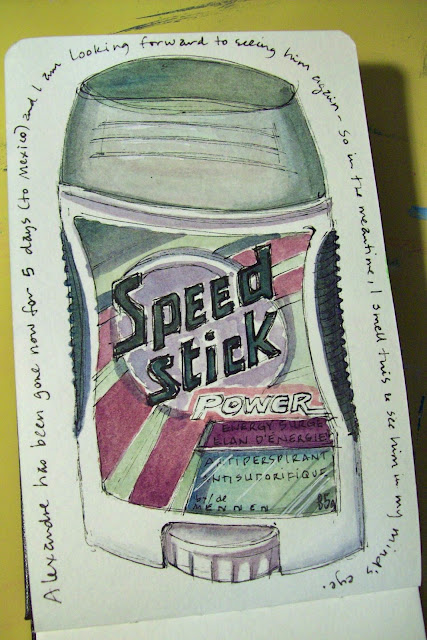 Alexandre has been gone now for 5 days (to Mexico) and I am looking forward to seeing him again - So in the meantime, I smell this & see him in my mind's eye.
SPEED
STICK
POWER
ENERGY SURGE
ÉLAN D'ÉNERGIE
ANTIPERSPIRANT
ANTISUDORIFIQUE
by/de
MENNEN
85g